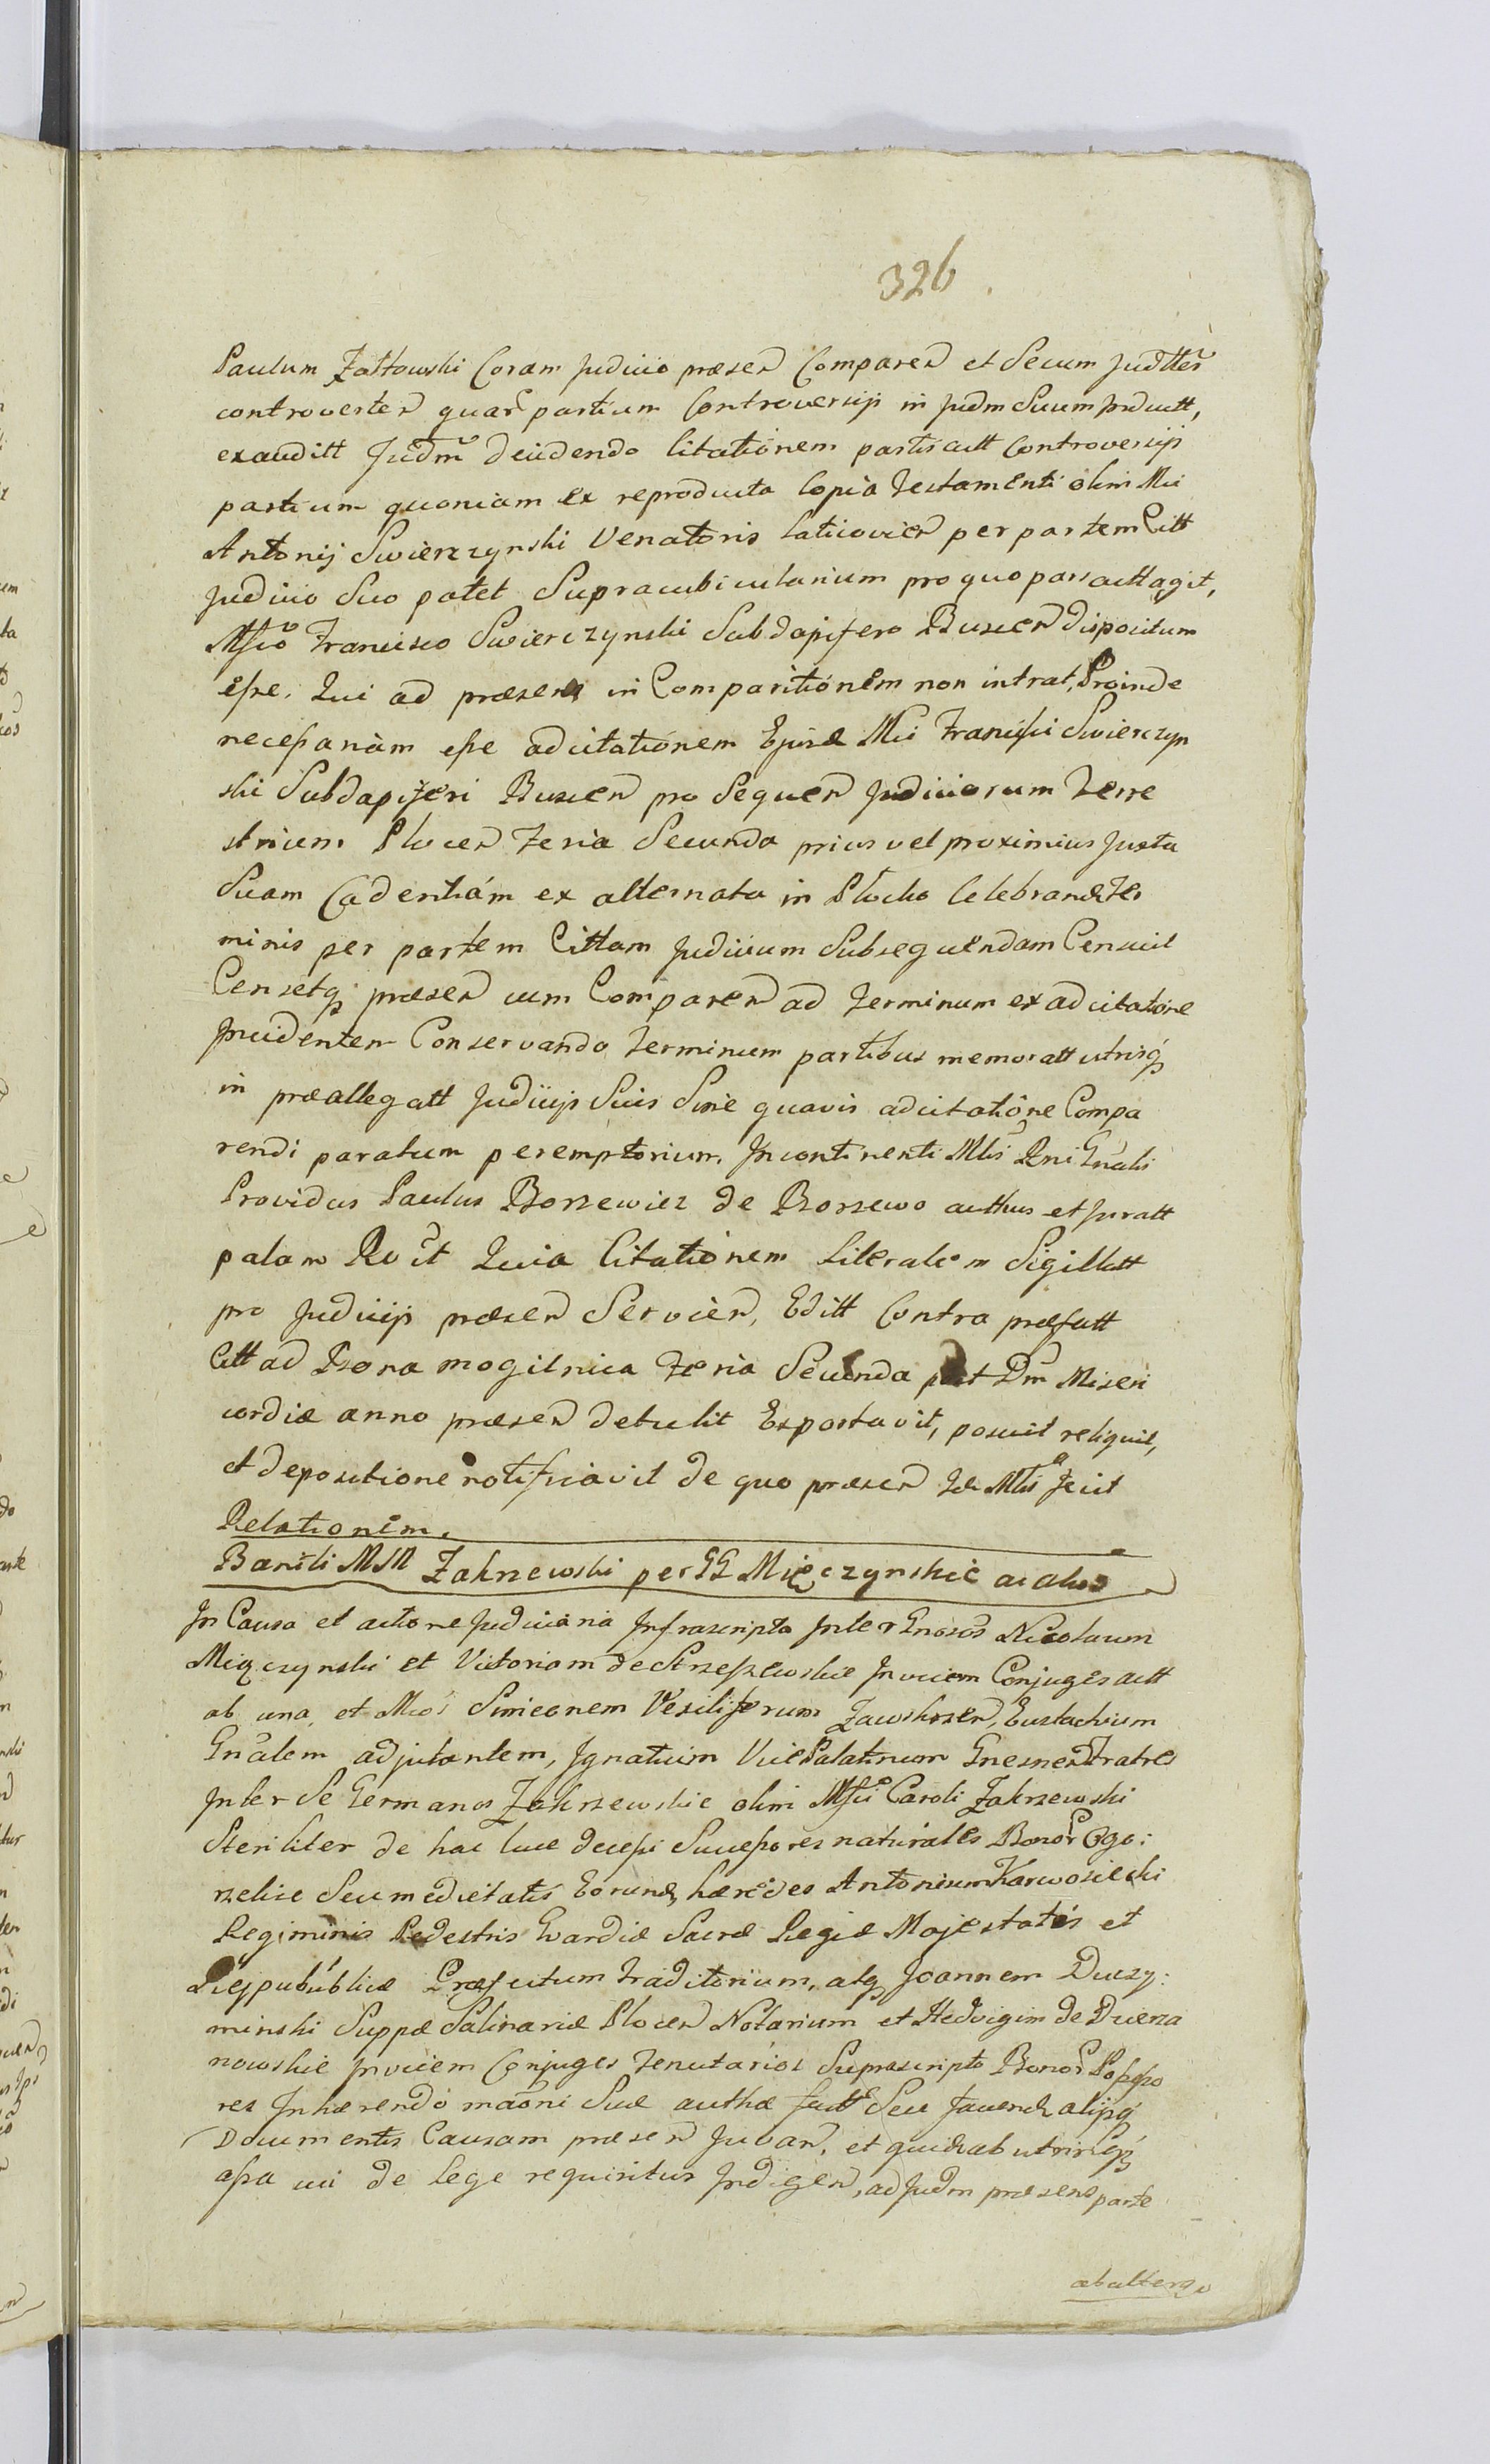 326.
Paulum Zattowski Coram Judicio præsen Comparen et Secum Judtter
controverten quar partium Controversijs in Judm Suum Inductt,
exauditt Judm decidendo Citationem partis actt Controversijs
partium quoniam ex reproducta Copia testamenti olim Mci
Antonij Swierczynski Venatoris Laticovien per partem Citt
Judicio Suo patet Supracubicularium pro quo pars actt agit,
Mfco Francisco Swierczynski Subdapifero Buscen dispositum
esse. Qui ad præsens in Comparitionem non intrat, Proinde
necessariam esse adcitationem Ejusd Mci Francisci Swierczyn
ski Subdapiferi Buscen pro Sequen Judiciorum Terre
strium Plocen Feria Secunda prius vel proximius Juxta
Suam Cadentiam ex alternata in Plocko Celebrand Ter
minis per partem Cittam Judicium Subsequendam Censuit
Censetq præsen cum Comparen ad terminum ex adcitatione
Incidentem Conservando terminum partibus memoratt utrisq
in præallegatt Judicijs Suis Sine quavis adcitatione Compa
rendi paratum peremptorium. Incontinenti Mtis Rni Gnalis
Providus Paulus Borzewicz de Borzewo authus et Juratt
palam Rc̃it Quia Citationem Literalem Sigillatt
pro Judicijs præsen Servien, Editt Contra præfatt
Citt ad Bona Mogilnica Feria Secunda post Dm Miseri
cordiæ anno præsen detulit Exportavit, posuit reliquit,
et de positione notificavit de quo præsen Idẽ Mtis fecit
Relationem.
Baniti MM Zakrzewski per GG Mięczynskie ac alios
In Causa et actione Judiciaria Infrascripta Inter Gnosos Nicolaum
Mięczynski et Victoriam de Strzeszewskie Invicem Conjuges actt
ab una et Mcos Simeonem Vexiliferum Zawskrzen, Eustachium
Gnalem adjutantem, Ignatium Vice Palatinum Gnesnen Fratres
Inter Se Germanos Zakrzewskie olim Mfci Caroli Zakrzewski
Steriliter de hac luce decessi Successores naturales Bonor Ogo:
rzelice Seu medietatis Eorund hæredes Antonium Karwosiecki
Regiminis Pedestris Gvardiæ Sacræ Regiæ Majestatis et
Reipububliæ Præfectum traditorium, atq Joannem Duczy:
minski Suppæ Salinariæ Plocen Notarium et Hedvigim de Durza
nowskie Invicem Conjuges Tenutarios Suprascripto Bonor Possesso
res Inhærendo mãoni Suæ authæ factt Seu faciend alijsq
Documentis Causam præsen Juvan, et quid ab utrisq
assa uti de lege requiritur Indigen, ad Judm præsens parte
ab altera